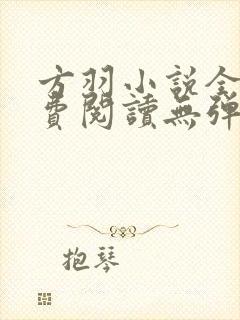 方羽小說全
費閱讀無彈
抱琴